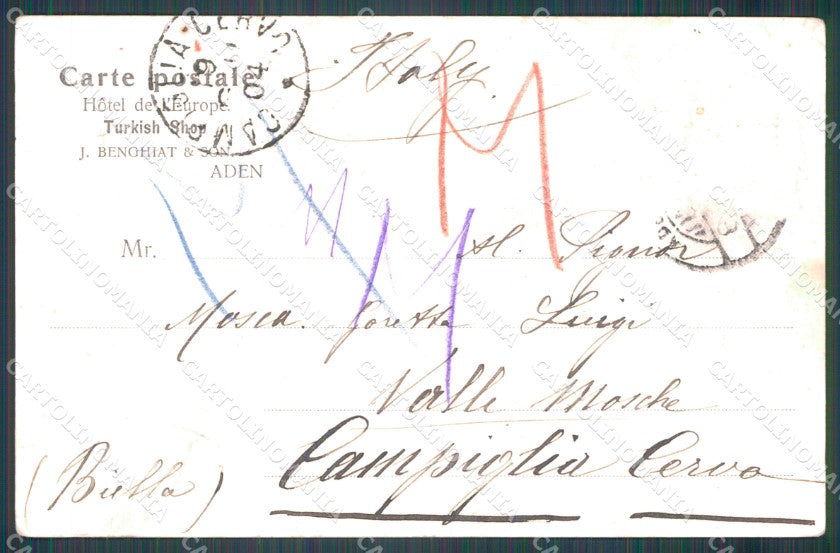 Carte postale
Hôtel de l'Europe
Turkish Shop
J. BENGHIAT & SON
ADEN
Italy
CAMPIGLIA CERVO
04
M
Mr. Al Signor
Mosca Goretta Luigi
Valle Mosche
Campiglia Cervo
(Biella)
CARTOLINOMANIA